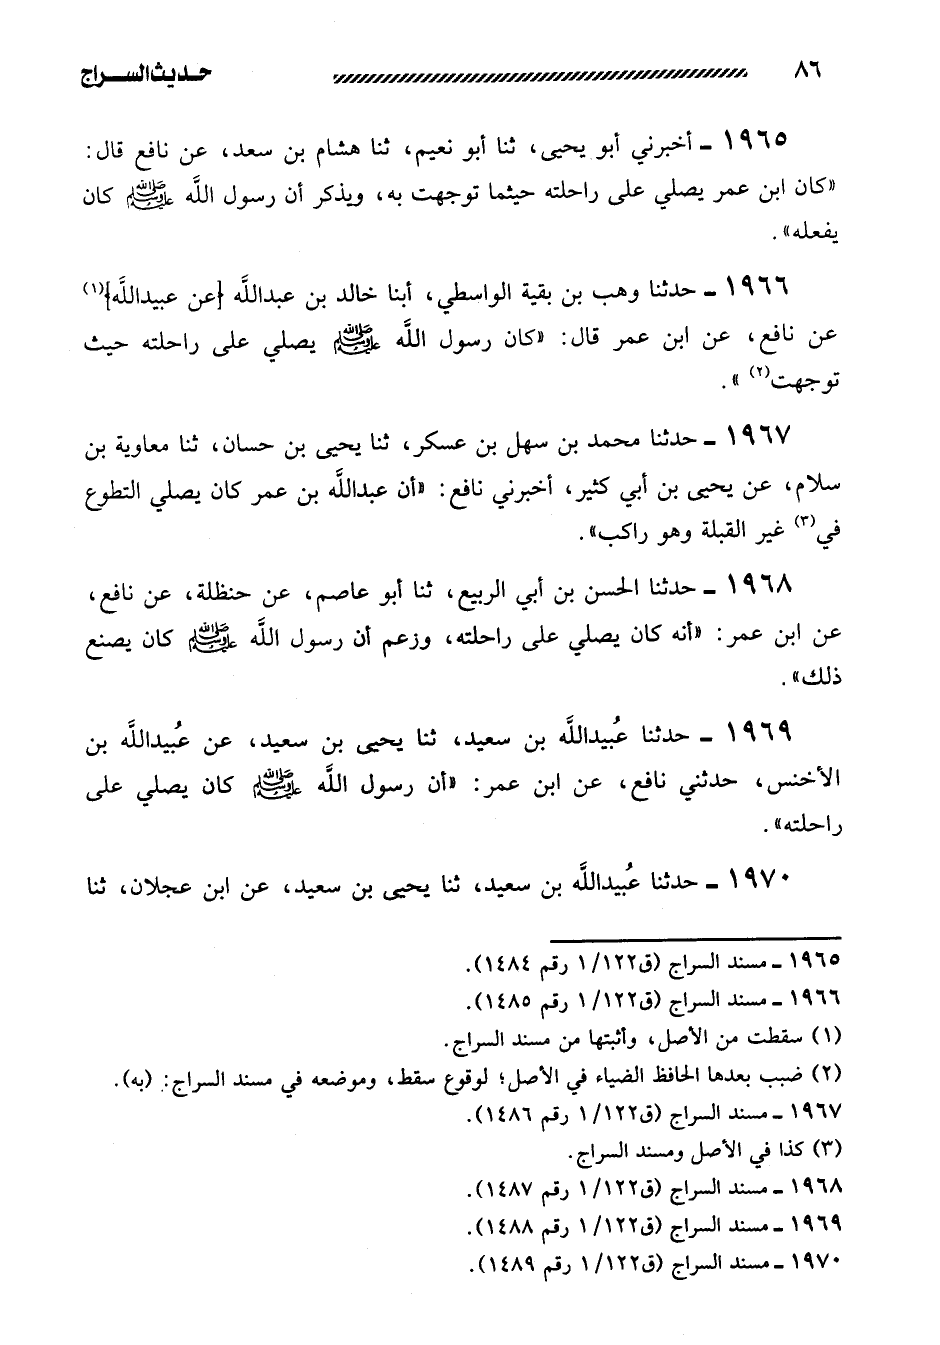 ٨٦ حديث السراج
١٩٦٥ ـ أخبرني أبو يحيى، ثنا أبو نعيم، ثنا هشام بن سعد، عن نافع قال:
«كان ابن عمر يصلي على راحلته حيثما توجهت به، ويذكر أن رسول اللَّه ﷺ كان
يفعله».
١٩٦٦ ـ حدثنا وهب بن بقية الواسطي، أبنا خالد بن عبداللَّه {عن عبيداللَّه}(١)
عن نافع، عن ابن عمر قال: «كان رسول اللَّه ﷺ يصلي على راحلته حيث
توجهت(٢) ».
١٩٦٧ ـ حدثنا محمد بن سهل بن عسكر، ثنا يحيى بن حسان، ثنا معاوية بن
سلام، عن يحيى بن أبي كثير، أخبرني نافع: «أن عبداللَّه بن عمر كان يصلي التطوع
في(٣) غير القبلة وهو راكب».
١٩٦٨ ـ حدثنا الحسن بن أبي الربيع، ثنا أبو عاصم، عن حنظلة، عن نافع،
عن ابن عمر: «أنه كان يصلي على راحلته، وزعم أن رسول اللَّه ﷺ كان يصنع
ذلك».
١٩٦٩ ـ حدثنا عُبيداللَّه بن سعيد، ثنا يحيى بن سعيد، عن عُبيداللَّه بن
الأخنس، حدثني نافع، عن ابن عمر: «أن رسول اللَّه ﷺ كان يصلي على
راحلته».
١٩٧٠ ـ حدثنا عُبيداللَّه بن سعيد، ثنا يحيى بن سعيد، عن ابن عجلان، ثنا
١٩٦٥ ـ مسند السراج (ق١٢٢/ ١ رقم ١٤٨٤).
١٩٦٦ ـ مسند السراج (ق١٢٢/ ١ رقم ١٤٨٥).
(١) سقطت من الأصل، وأثبتها من مسند السراج.
(٢) ضبب بعدها الحافظ الضياء في الأصل؛ لوقوع سقط، وموضعه في مسند السراج: (به).
١٩٦٧ ـ مسند السراج (ق١٢٢/ ١ رقم ١٤٨٦).
(٣) كذا في الأصل ومسند السراج.
١٩٦٨ ـ مسند السراج (ق١٢٢/ ١ رقم ١٤٨٧).
١٩٦٩ ـ مسند السراج (ق١٢٢/ ١ رقم ١٤٨٨).
١٩٧٠ ـ مسند السراج (ق١٢٢/ ١ رقم ١٤٨٩).